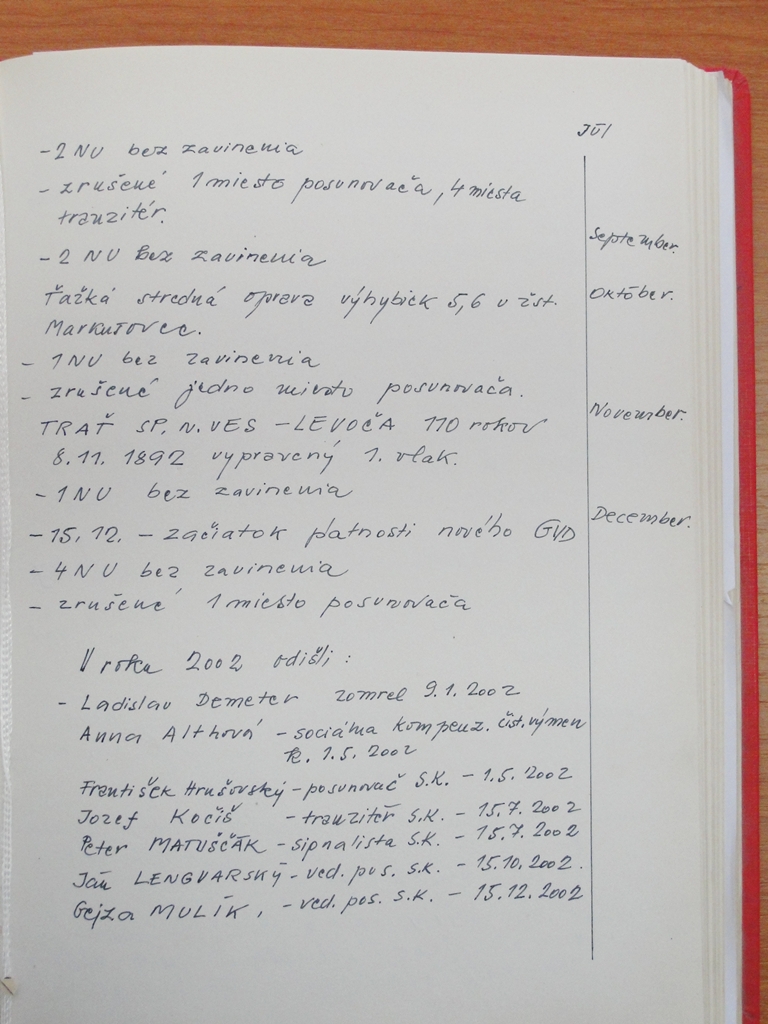 JÚl
- 2 NU bez zavinenia
- zrušené 1 miesto posunovača, 4 miesta
tranzitér.
September.
- 2 NU bez zavinenia
Október.
Ťažká stredná oprava výhybiek 5,6 v žst.
Markušovce.
- 1 NU bez zavinenia
- zrušené jedno miesto posunovača.
November.
TRAŤ SP. N. VES - LEVOČA 110 rokov
8.11. 1892 vypravený 1. vlak.
- 1 NU bez zavinenia
December.
- 15.12. - začiatok platnosti nového GVD
- 4 NU bez zavinenia
- zrušené 1 miesto posunovača
V roku 2002 odišli :
- Ladislav Demeter zomrel 9.1.2002
Anna Althová - sociálna kompenz. čist. výmen
k. 1.5. 2002
František Hrušovský - posunovač S.K. - 1.5. 2002
Jozef Kočiš - tranzitér S.K. - 15.7. 2002
Peter MATUŠČÁK - signalista S.K. - 15.7. 2002
Ján LENGVARSKÝ - ved. pos. S.K. - 15.10. 2002.
Gejza MULÍK, - ved. pos. S.K. - 15.12. 2002